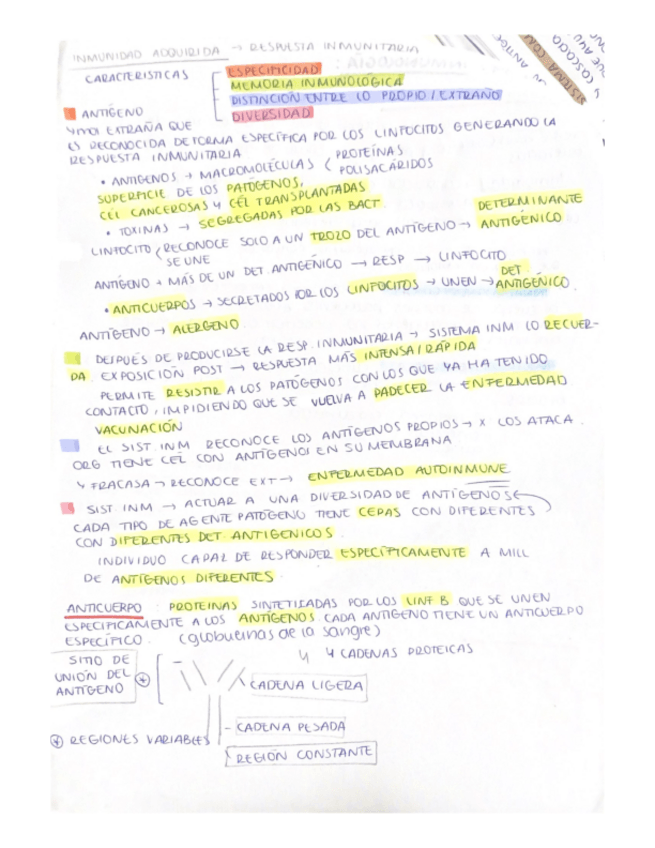 INMUNIDAD ADQUIRIDA → RESPUESTA INMUNITARIA
CARACTERISTICAS
ESPECIFICIDAD
MEMORIA INMUNOLÓGICA
DISTINCIÓN ENTRE LO PROPIO/EXTRAÑO
DIVERSIDAD
ANTÍGENO
EXTRAÑA QUE
ES RECONOCIDA DE FORMA ESPECÍFICA POR LOS LINFOCITOS GENERANDO LA
RESPUESTA INMUNITARIA
• ANTÍGENOS → MACROMOLÉCULAS < PROTEÍNAS
POLISACÁRIDOS
SUPERFICIE DE LOS PATÓGENOS,
CÉL CANCEROSAS Y CÉL TRANSPLANTADAS
• TOXINAS → SEGREGADAS POR LAS BACT.
LINFOCITO < RECONOCE SOLO A UN TROZO DEL ANTÍGENO → DETERMINANTE ANTIGÉNICO
SE UNE
ANTÍGENO + MÁS DE UN DET. ANTIGÉNICO → RESP → LINFOCITO
• ANTICUERPOS → SECRETADOS POR LOS LINFOCITOS → UNEN → DET. ANTIGÉNICO.
ANTÍGENO → ALÉRGENO
DESPUÉS DE PRODUCIRSE LA RESP. INMUNITARIA → SISTEMA INM LO RECUER-
DA. EXPOSICIÓN POST → RESPUESTA MÁS INTENSA/RÁPIDA
PERMITE RESISTIR A LOS PATÓGENOS CON LOS QUE YA HA TENIDO
CONTACTO, IMPIDIENDO QUE SE VUELVA A PADECER LA ENFERMEDAD
VACUNACIÓN
EL SIST. INM RECONOCE LOS ANTÍGENOS PROPIOS → X LOS ATACA.
ORG TIENE CÉL CON ANTÍGENOS EN SU MEMBRANA
↳ FRACASA → RECONOCE EXT → ENFERMEDAD AUTOINMUNE
SIST. INM → ACTUAR A UNA DIVERSIDAD DE ANTÍGENOS
CADA TIPO DE AGENTE PATÓGENO TIENE CEPAS CON DIFERENTES
CON DIFERENTES DET ANTIGÉNICOS.
INDIVIDUO CAPAZ DE RESPONDER ESPECÍFICAMENTE A MILL
DE ANTÍGENOS DIFERENTES.
ANTICUERPO : PROTEÍNAS SINTETIZADAS POR LOS LINF B QUE SE UNEN
ESPECÍFICAMENTE A LOS ANTÍGENOS CADA ANTÍGENO TIENE UN ANTICUERPO
ESPECÍFICO. (globulinas de la sangre)
↳ 4 CADENAS PROTEICAS
SITIO DE
UNIÓN DEL
ANTÍGENO
CADENA LIGERA
- CADENA PESADA
REGIONES VARIABLES
REGIÓN CONSTANTE